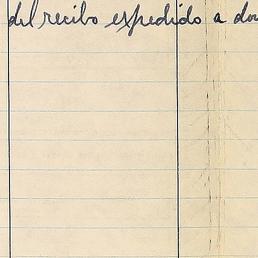 del recibo expedido a don